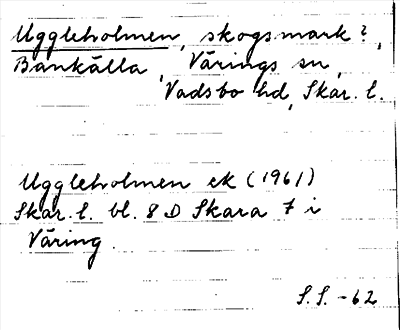 Uggleholmen, skogsmark?,
Bankälla, Värings sn,
Vadsbo hd, Skar. l.
Uggleholmen ek (1961)
Skar. l. bl. 8 D Skara 7 i
Väring.
S.S. -62